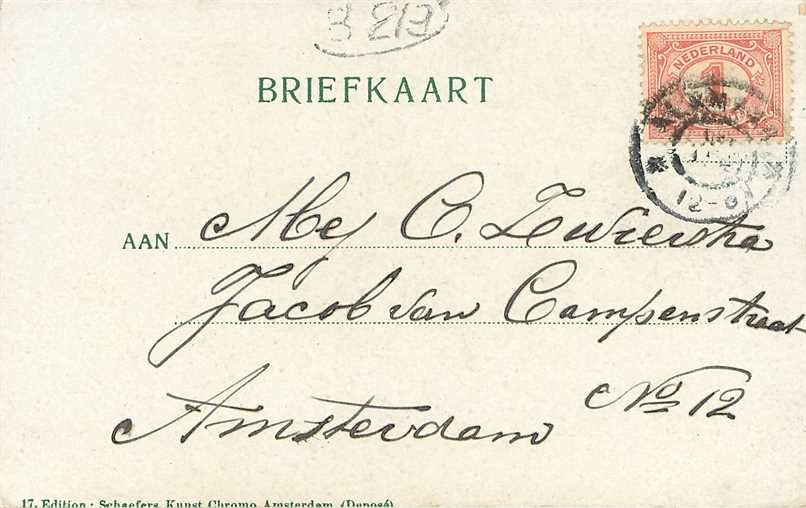 B 219
BRIEFKAART
NEDERLAND
1
12-
AAN Mej C. Zwierstra
Jacob van Campenstraat
No 12
Amsterdam
17. Edition: Schaefers Kunst Chromo Amsterdam (Deposé)